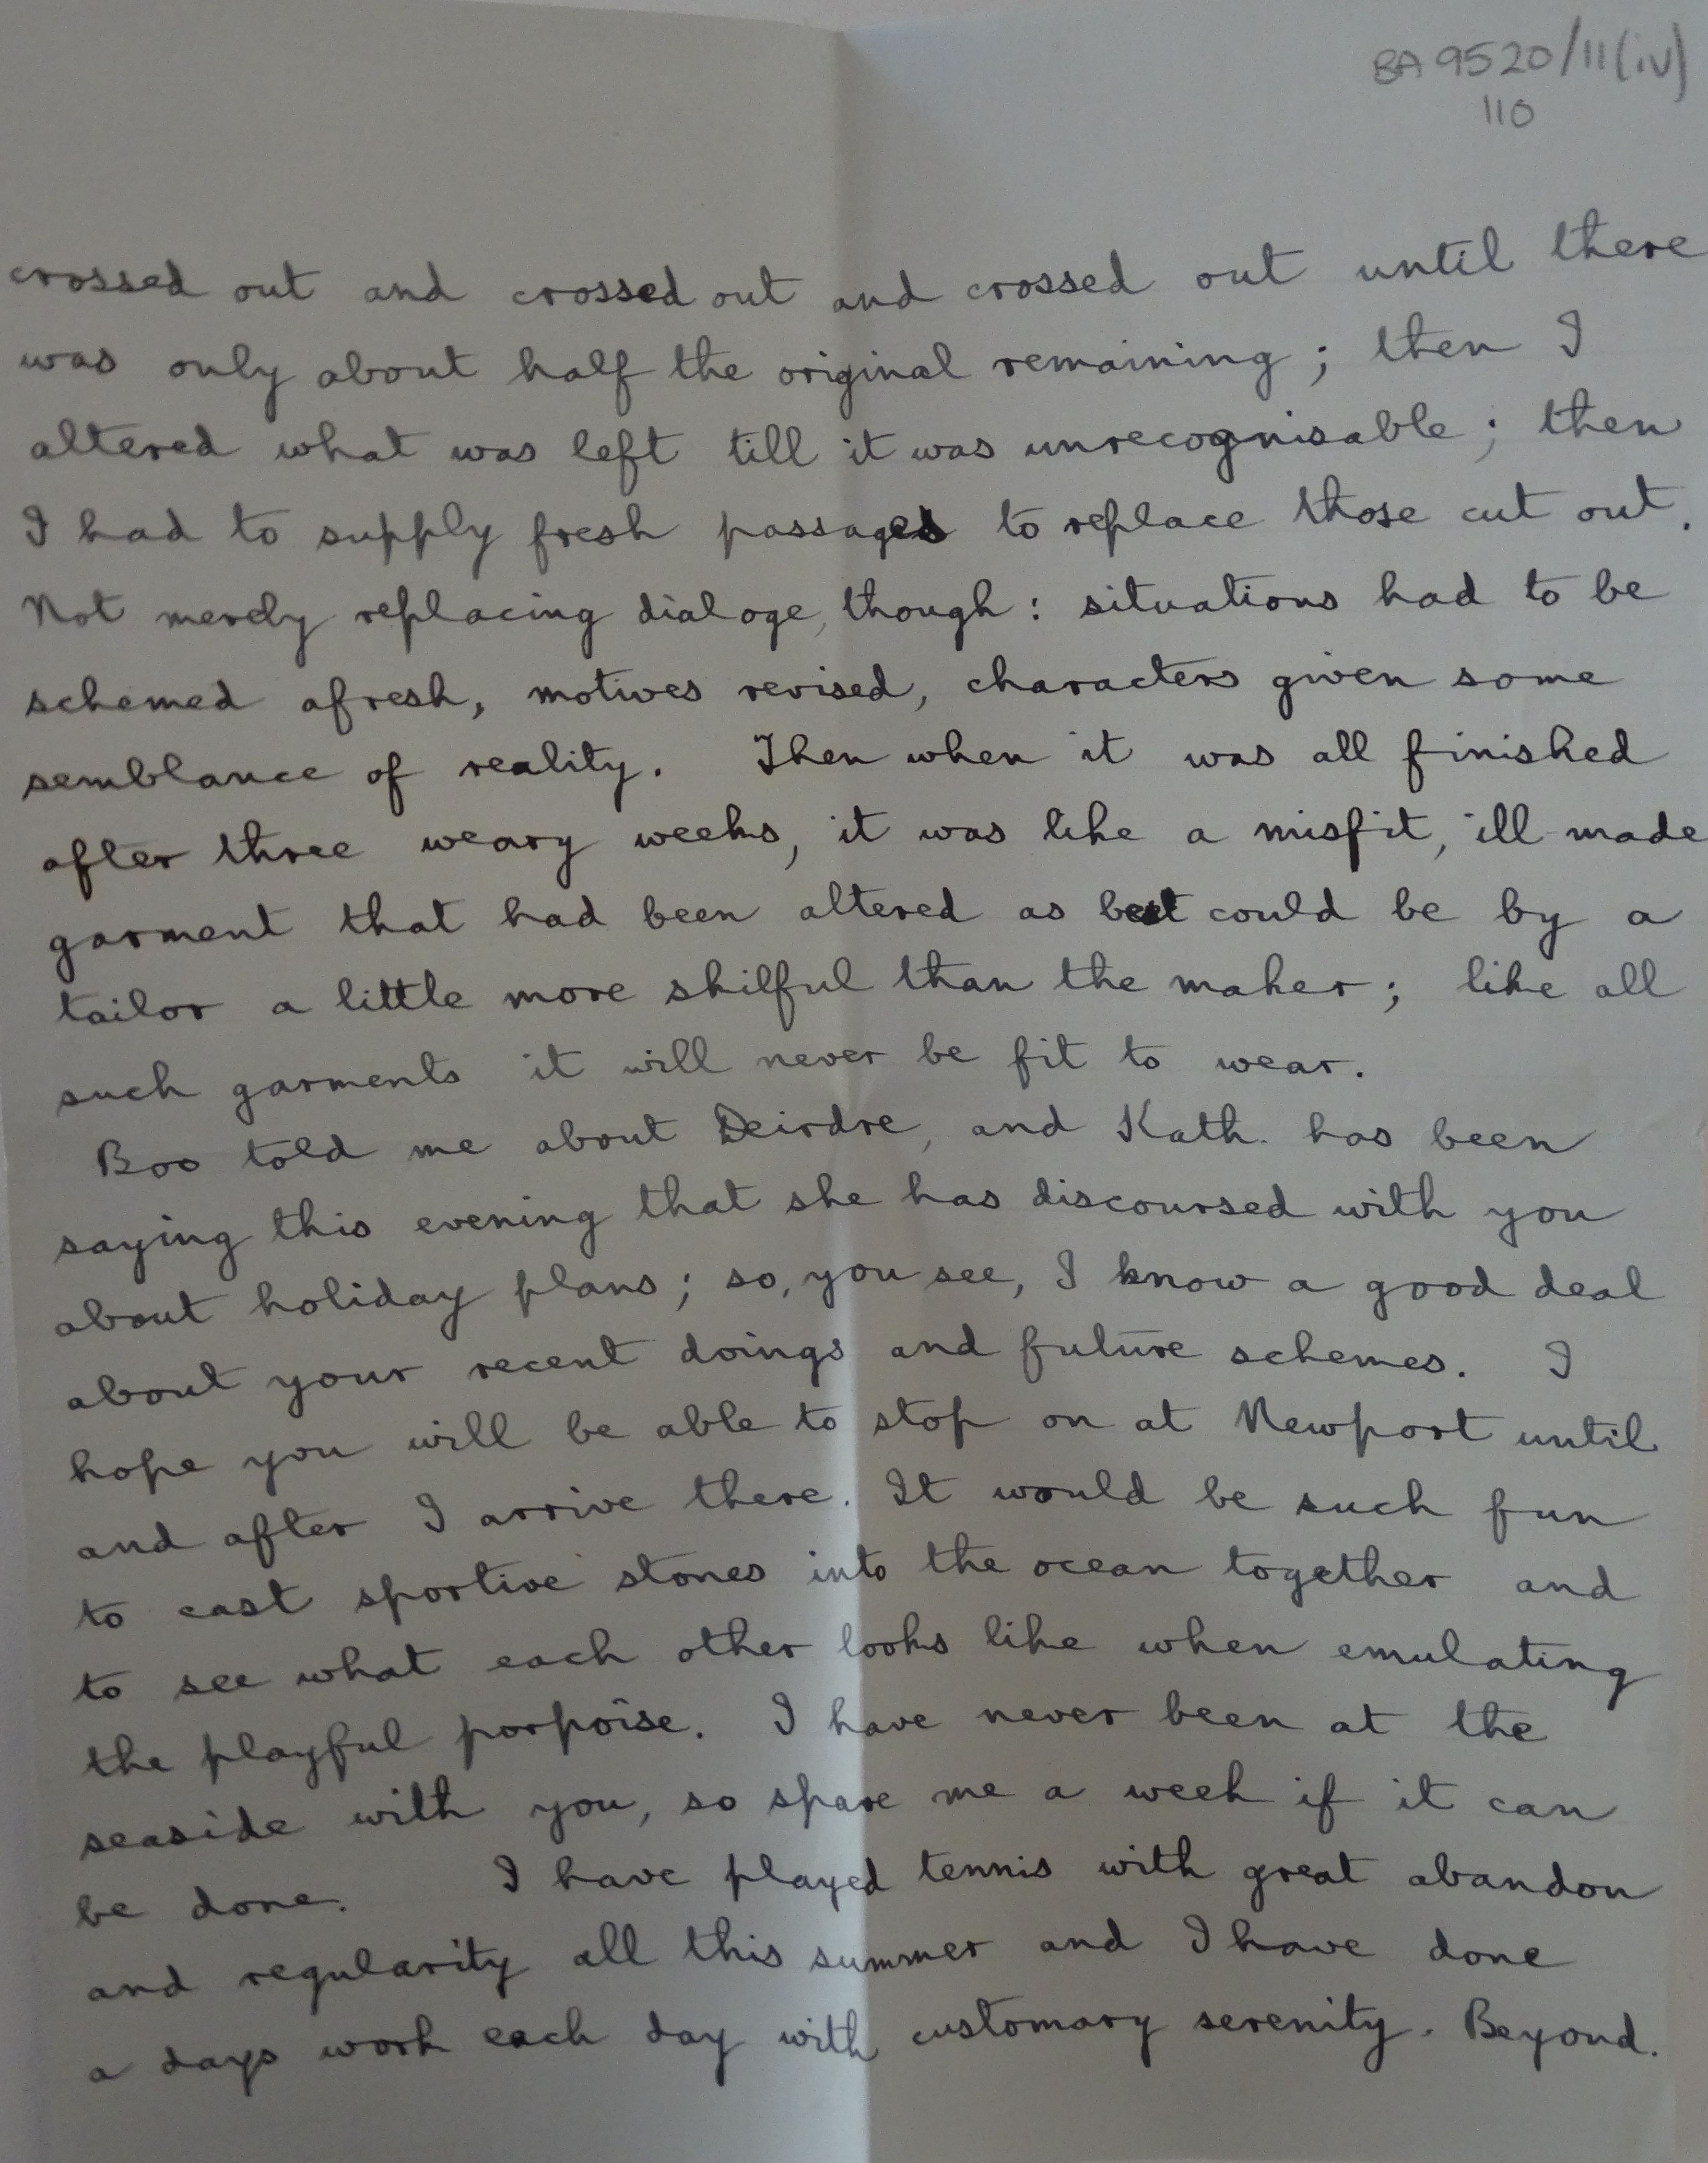 BA 9520/11(iv)
110
crossed out and crossed out and crossed out until there
was only about half the original remaining; then I
altered what was left till it was unrecognisable; then
I had to supply fresh passages to replace those cut out.
Not merely replacing dialoge, though: situations had to be
schemed afresh, motives revised, characters given some
semblance of reality. Then when it was all finished
after three weary weeks, it was like a misfit, ill made
garment that had been altered as best could be by a
tailor a little more skilful than the maker; like all
such garments it will never be fit to wear.
Boo told me about Deirdre, and Kath. has been
saying this evening that she has discoursed with you
about holiday plans; so, you see, I know a good deal
about your recent doings and future schemes. I
hope you will be able to stop on at Newport until
and after I arrive there. It would be such fun
to cast sportive stones into the ocean together and
to see what each other looks like when emulating
the playful porpoise. I have never been at the
seaside with you, so spare me a week if it can
be done. I have played tennis with great abandon
and regularity all this summer and I have done
a days work each day with customary serenity. Beyond.